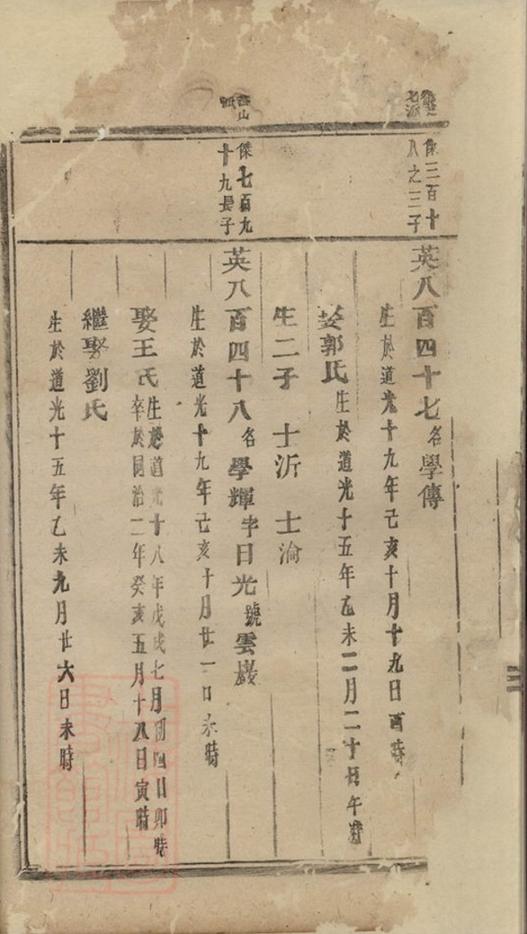 七派
傑三百十
八之三子
英八百四十七名學傳
生於道光十九年己亥十月十九日酉時
娶郭氏生於道光十五年乙未二月二十日午時
生二子 士沂 士淪
山
傑七百九
十九長子
英八百四十八名學輝字日光號雲巖
生於道光十九年己亥十月廿一日未時
娶王氏生於道光十八年戊戌七月初四日卯時
卒於同治二年癸亥五月十八日寅時
繼娶劉氏
生於道光十五年乙未九月廿六日未時